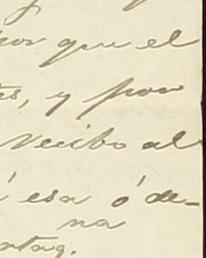 por que el
es, y por
recibo al
esa ó de-
na
ntag.